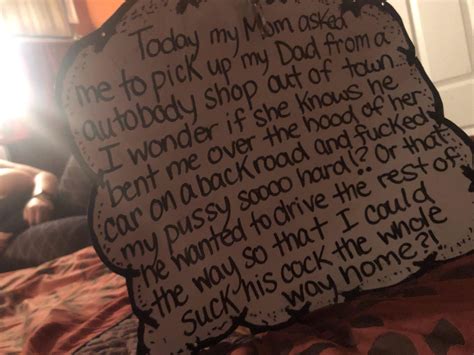 Today my Mom asked
me to pick up my Dad from a
autobody shop out of town.
I wonder if she knows he
bent me over the hood of her
car on a back road and fucked
my pussy soooo hard!? Or that
he wanted to drive the rest of
the way so that I could
suck his cock the whole
way home?!